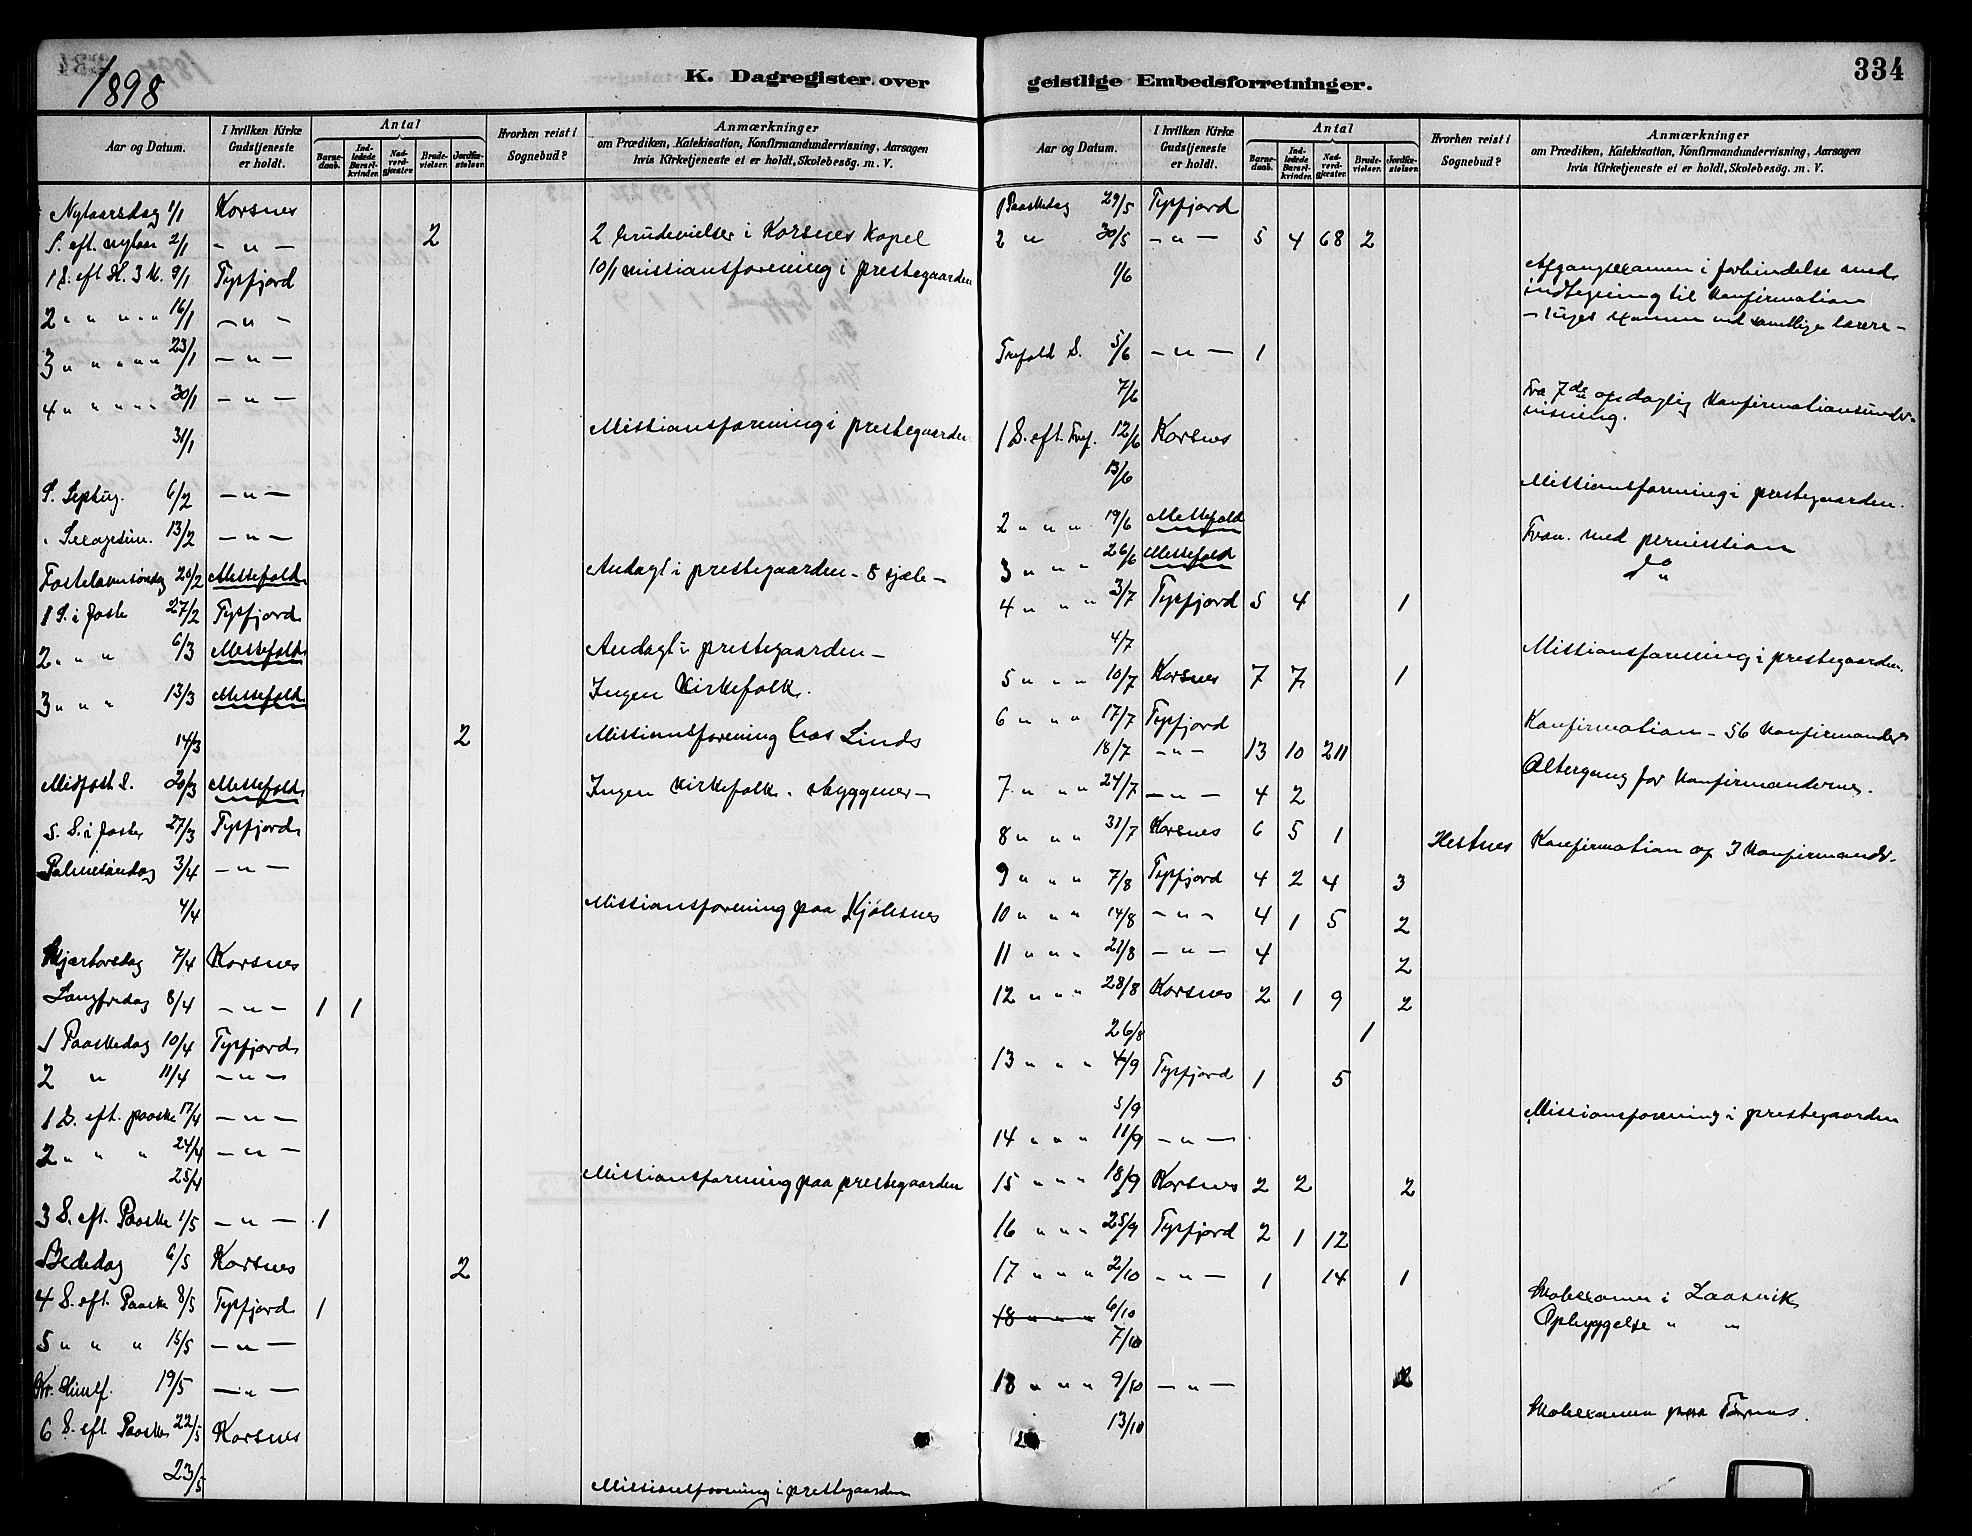 1898
K. Dagregister over
Aar og Datum.
I hvilken Kirke Gudstjeneste er holdt.
Antal
Barnedaab.
Indledede Barselkvinder.
Nadverdgjester.
Brudevielser.
Jordfæstelser.
Hvorhen reist i Sognebud?
Anmærkninger
om Prædiken, Katekisation, Konfirmandundervisning, Aarsagen
hvis Kirketjeneste ei er holdt, Skolebesøg. m. V.
Nytaarsdag 1/1 Korsnes
S. eft. nytaar 2/1 - " - 2 2 brudevielser i Korsnes Kapel
1 S. eft. H. 3 K. 9/1 Tysfjord 10/1 missionsforening i prestegaarden
2 " " " " 16/1 - " -
3 " " " " 23/1 - " -
4 " " " " 30/1 - " -
31/1 Missionsforening i prestegaarden
S. Septug. 6/2 - " -
" Sexagesim. 13/2 - " -
Fastelavnssøndag 20/2 Messefald Andagt i prestegaarden - 8 sjæle -
1 S. i faste 27/2 Tysfjord
2 " " 6/3 Messefald Andagt i prestegaarden -
3 " " " 13/3 Messefald Ingen Kirkefolk.
14/3 2 Missionsforening hos Linds
Midfast S. 20/3 Messefald Ingen Kirkefolk.
5. S. i faste 27/3 Tysfjord
Palmesøndag 3/4 - " -
4/4 Missionsforening paa Kjølsnes
Skjærtorsdag 7/4 Korsnes
Langfredag 8/4 - " - 1 1
1 Paaskedag 10/4 Tysfjord
2 " 11/4 - " -
1 S. eft. paaske 17/4 - " -
2 " " " 24/4 - " -
25/4 Missionsforening paa prestegaarden
3 S. eft. Paaske 1/5 - " - 1
Bededag 6/5 Korsnes 2
4 S. eft. Paaske 8/5 Tysfjord 1
5 " " " 15/5 - " -
Kr. Himlf. 19/5 - " -
6 S. eft Paaske 22/5 Korsnes
23/5 Missionsforening i prestegaarden
geistlige Embedsforretninger.
334
Aar og Datum.
I hvilken Kirke Gudstjeneste er holdt.
Antal
Barnedaab.
Indledede Barselkvinder.
Nadverdgjester.
Brudevielser.
Jordfæstelser.
Hvorhen reist i Sognebud?
Anmærkninger
om Prædiken, Katekisation, Konfirmandundervisning, Aarsagen
hvis Kirketjeneste ei er holdt, Skolebesøg. m. V.
1 Paaskedag 29/5 Tysfjord
2 " 30/5 - " - 5 4 68 2
1/6 Afgangsexamen i forbindelse med
indtegning til Konfirmation
examen ved samtlige lærere -
Trefold S. 5/6 - " - 1
7/6 Fra 7de af daglig Konfirmationsunder-
visning.
1 S. eft. Tref. 12/6 Korsnes
13/6 Missionsforening i prestegaarden.
2 " " " 19/6 Messefald Frav. med permission
3 " " " 26/6 Messefald do "
4 " " " 3/7 Tysfjord 5 4 1
4/7 Missionsforening i prestegaarden.
5 " " " 10/7 Korsnes 7 7 1
6 " " " 17/7 Tysfjord Konfirmation - 56 Konfirmander
18/7 - " - 13 10 211 Altergang for Konfirmanderne.
7 " " " 24/7 - " - 4 2
8 " " " 31/7 Korsnes 6 5 1 Hestnes Konfirmation af 3 Konfirmander.
9 " " " 7/8 Tysfjord 4 2 4 3
10 " " " 14/8 - " - 4 1 5 2
11 " " " 21/8 - " - 4 2
12 " " " 28/8 Korsnes 2 1 9 2
26/8 1
13 " " " 4/9 Tysfjord 1 5
5/9 Missionsforening i prestegaarden
14 " " " 11/9 - " -
15 " " " 18/9 Korsnes 2 2 2
16 " " " 25/9 Tysfjord 2 1 12
17 " " " 2/10 - " - 1 14 1
18 " " " 6/10 Skolexamen i Laasvik
7/10 Opbyggelse " "
18 " " " 9/10 - " -
13/10 Skolexamen paa